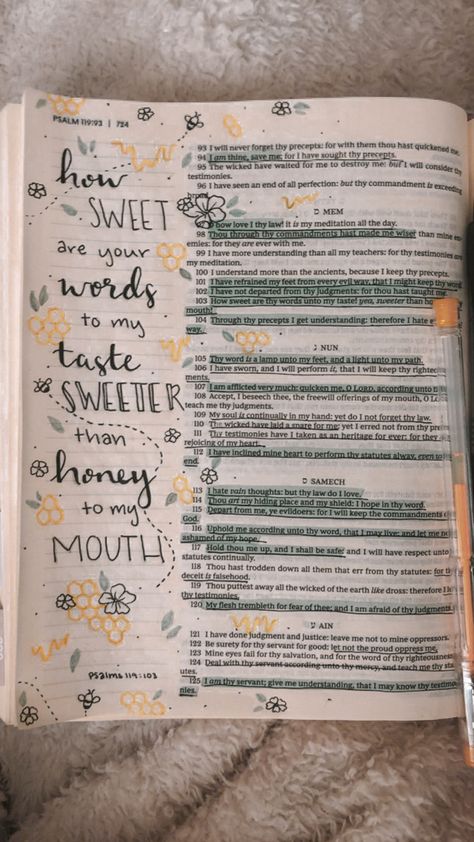 PSALM 119:93 | 724
how
SWEET
are your
words
to my
taste
SWEETER
than
honey
to my
MOUTH
Psalms 119:103
93 I will never forget thy precepts: for with them thou hast quickened me.
94 I am thine, save me; for I have sought thy precepts.
95 The wicked have waited for me to destroy me: but I will consider thy
testimonies.
96 I have seen an end of all perfection: but thy commandment is exceeding
MEM
how love I thy law! it is my meditation all the day.
98 Thou through thy commandments hast made me wiser than mine
emies: for they are ever with me.
99 I have more understanding than all my teachers: for thy testimonies are
my meditation.
100 I understand more than the ancients, because I keep thy precepts.
101 I have refrained my feet from every evil way, that I might keep thy word.
102 I have not departed from thy judgments: for thou hast taught me.
103 How sweet are thy words unto my taste! yea, sweeter than
mouth!
104 Through thy precepts I get understanding: therefore I hate
way.
NUN
105 Thy word is a lamp unto my feet, and a light unto my path.
106 I have sworn, and I will perform it, that I will keep thy righteous
ments.
107 I am afflicted very much: quicken me, O LORD, according unto
108 Accept, I beseech thee, the freewill offerings of my mouth, O
teach me thy judgments.
109 My soul is continually in my hand: yet do I not forget thy law.
110 The wicked have laid a snare for me: yet I erred not from thy
111 Thy testimonies have I taken as an heritage for ever: for they
rejoicing of my heart.
112 I have inclined mine heart to perform thy statutes alway, even
end.
SAMECH
113 I hate vain thoughts: but thy law do I love.
114 Thou art my hiding place and my shield: I hope in thy word.
115 Depart from me, ye evildoers: for I will keep the commandments
God.
116 Uphold me according unto thy word, that I may live: and let me
ashamed of my hope.
117 Hold thou me up, and I shall be safe: and I will have respect unto
statutes continually.
118 Thou hast trodden down all them that err from thy statutes: for
deceit is falsehood.
119 Thou puttest away all the wicked of the earth like dross: therefore I
thy testimonies.
120 My flesh trembleth for fear of thee; and I am afraid of thy judgments.
AIN
121 I have done judgment and justice: leave me not to mine oppressors.
122 Be surety for thy servant for good: let not the proud oppress me.
123 Mine eyes fail for thy salvation, and for the word of thy righteousness.
124 Deal with thy servant according unto thy mercy, and teach me
utes.
125 I am thy servant; give me understanding, that I may know thy
nies.